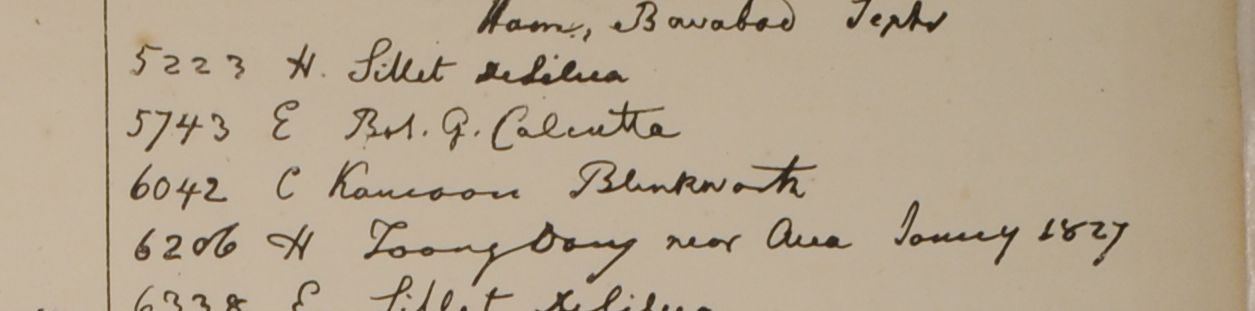 Ham., Bavabad Septr
5223 H. Sillet deSilva
5743 E Bot. G. Calcutta
6042 C Kamaon Blinkworth
6206 H Toong Dong near Ava 1827
6338 E Sillet deSilva